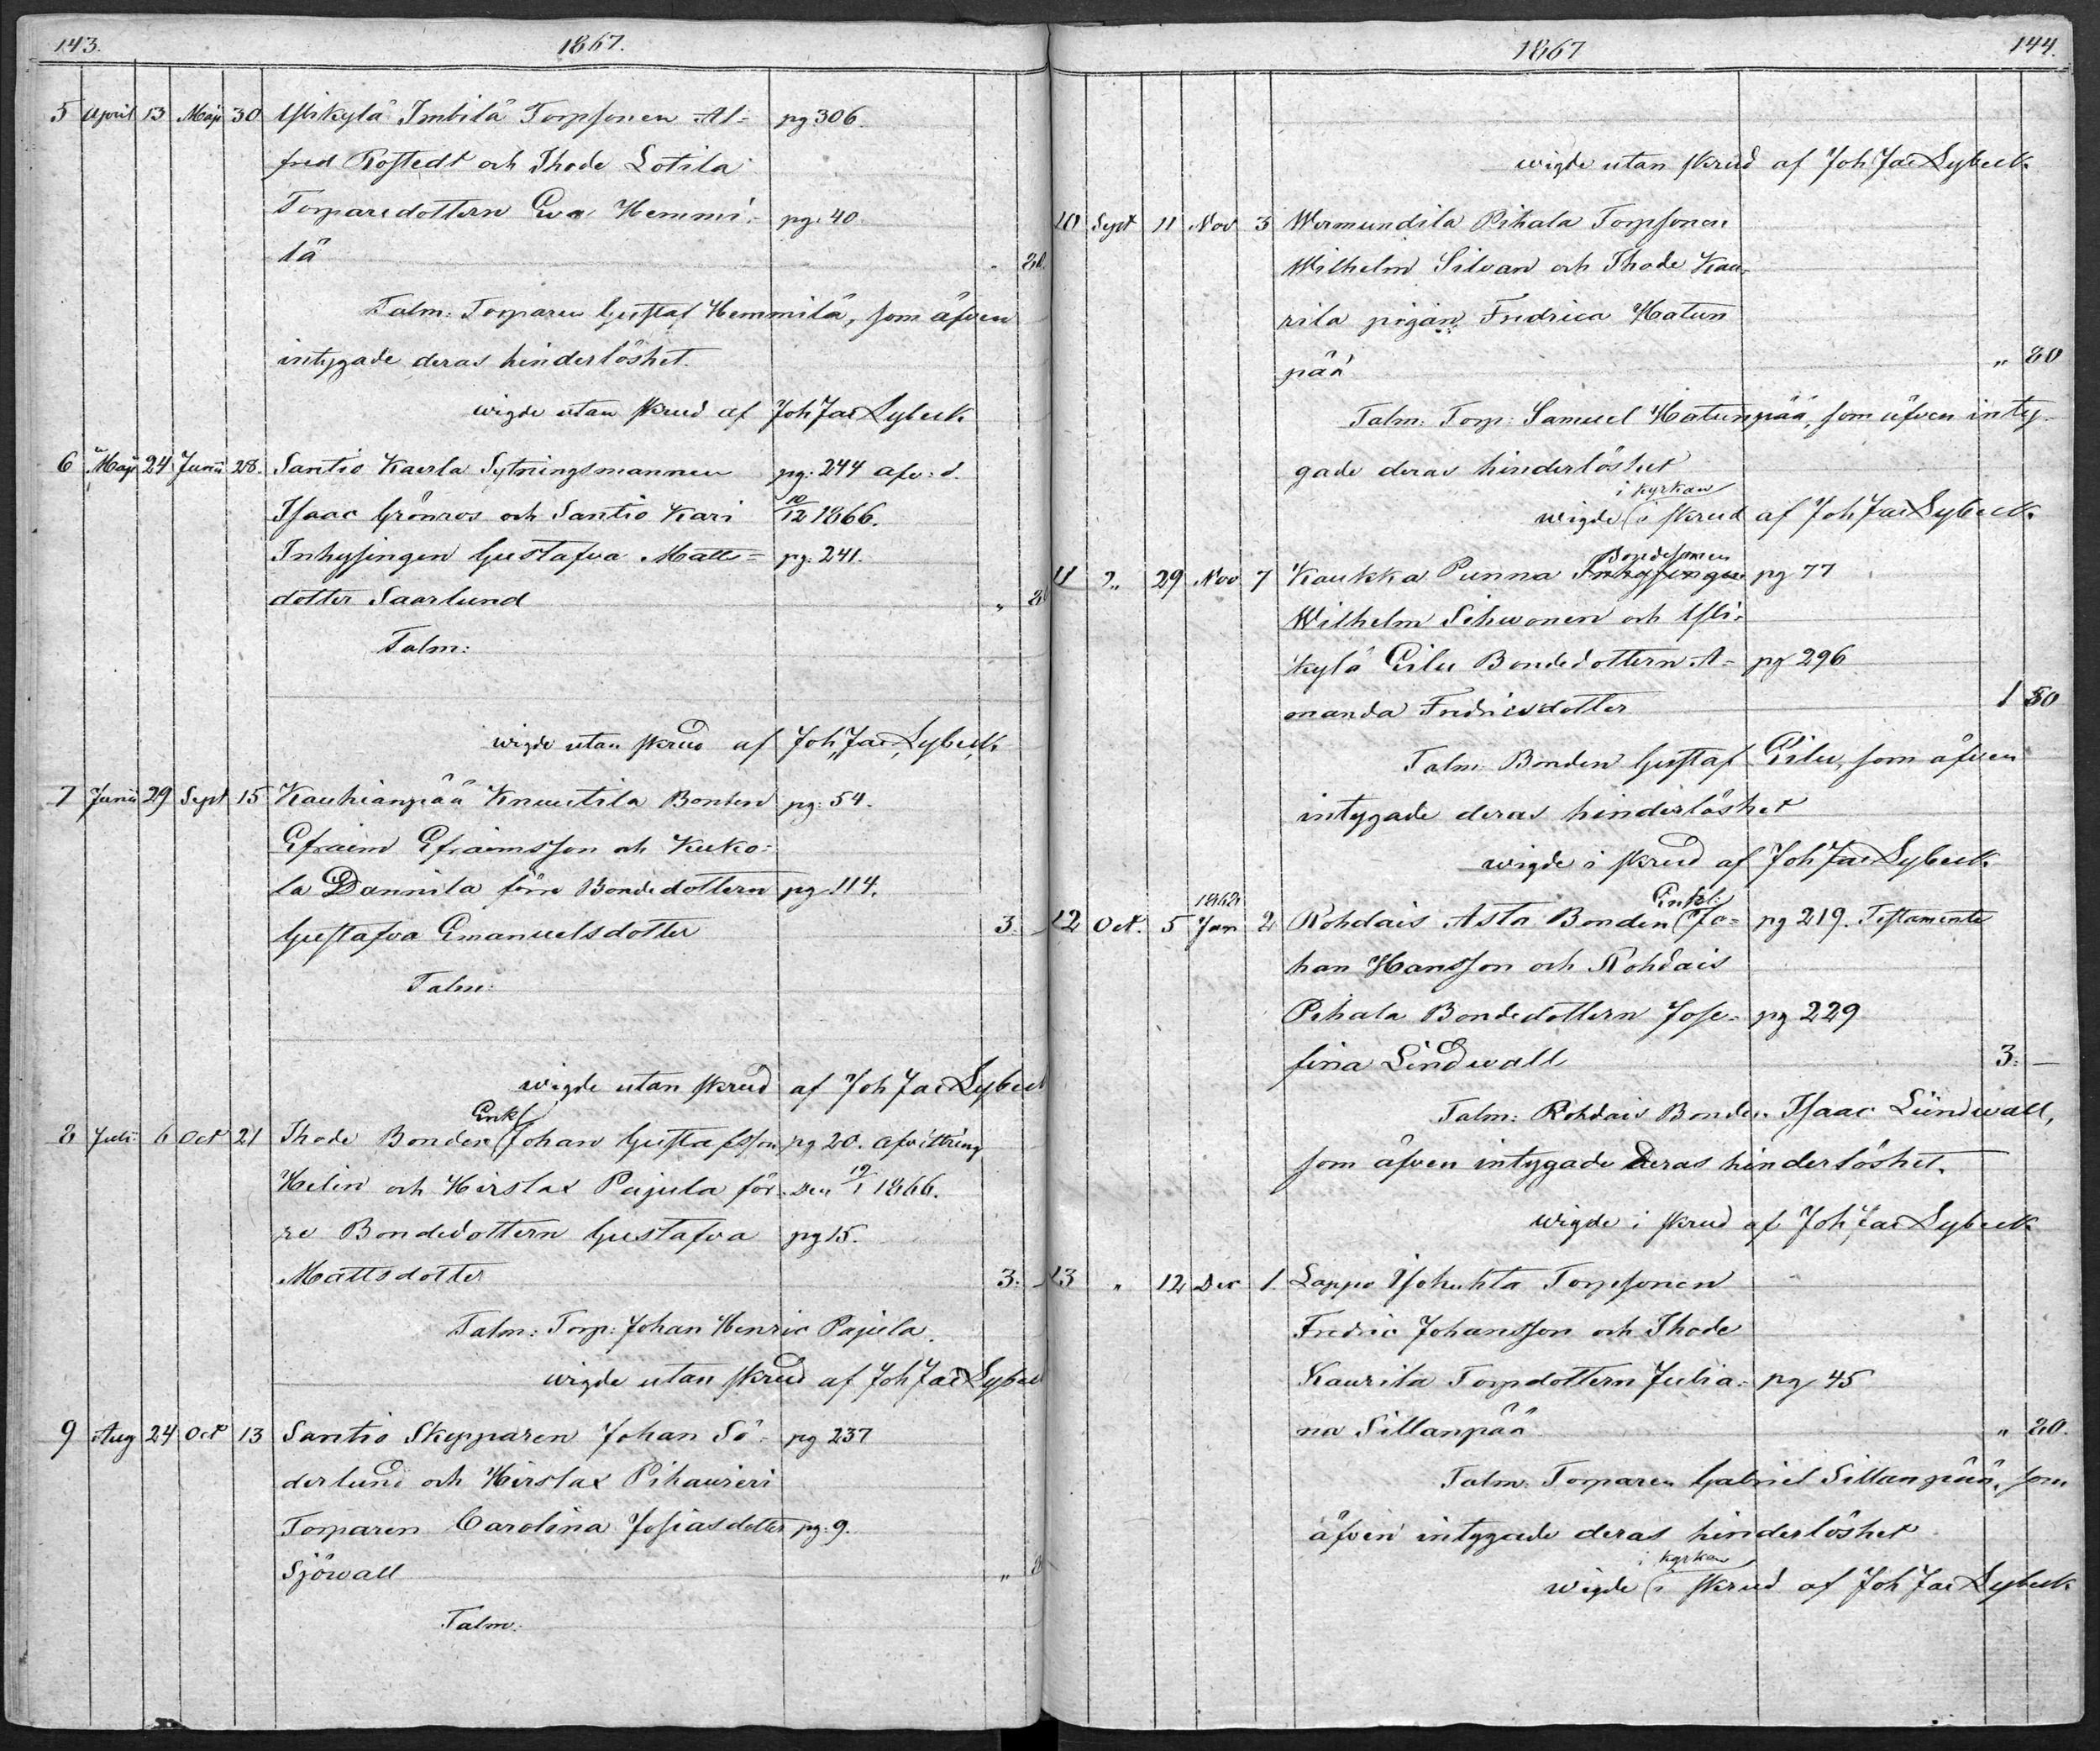 143.
1867.
5 April 13 Maji 30 Ylikylä Imbilä Torpsonen Al= pg. 306.
fred Rostedt och Thode Lotila
Torparedottern Eva Hemmi= pg. 40.
lä „ 80.
Talm: Torparen Gustaf Hemmilä, som äfven
intygade deras hinderlöshet.
wigde utan skrud af Joh Jac Lybeck
6 Maji 24 Junii 28. Santio Kaerla Sytningsmannen pg. 244 afv: d.
Isaac Grönros och Santio Kari 10/12 1866.
Inhysingen Gustafva Matts= pg. 241.
dotter Saarlund „ 8
Talm:
wigde utan skrud af Joh Jac Lybeck
7 Junii 29 Sept 15 Kauhianpää Knuutila Bonden pg. 54.
Efraim Efraimsson och Kuko=
la Dannila förre Bondedottern pg 114.
Gustafva Emanuelsdotter 3. —
Talm:
wigde utan skrud af Joh Jac Lybeck
8 Juli 6 Oct 21 Thode Bonden Enkl. Johan Gustafsson pg 20. afvittring
Helin och Hirslax Pajula för- Den 19/1 1866.
re Bondedottern Gustafva pg 15.
Mattsdotter 3. —
Talm: Torp: Johan Henric Pajula.
wigde utan skrud af Joh Jac Lybeck
9 Aug 24 Oct 13 Santio Skepparen Johan Sö- pg 237
derlund och Hirslax Pihaurieri
Torparen Carolina Josiasdotter pg. 9.
Sjöwall „ 8
Talm:
1867
144.
wigde utan skrud af Joh Jac Lybeck
10 Sept 11 Nov 3 Wermundila Pihala Torpsonen
Wilhelm Silvan och Thode Kau-
rila pigan Fredrica Hatun
pää „ 80
Talm: Torp: Samuel Hatunpää, som äfven inty-
gade deras hinderlöshet
i kyrkan
wigde i skrud af Joh Jac Lybeck
Bondesonen
11 „ 29 Nov 7 Kaukka Punna Inhysingen pg 77
Wilhelm Sihwonen och Yli-
kylä Eilu Bondedottern A- pg 296
manda Fredricsdotter 1 50
Talm: Bonden Gustaf Eilu, som äfven
intygade deras hinderlöshet
wigde i skrud af Joh Jac Lybeck
1868 Enkl:
12 Oct. 5 Jan 2 Rohdais Asta Bonden Jo- pg 219. Testamente
han Hansson och Rohdais
Pihala Bondedottern Jose- pg 229
fina Lindwall 3. —
Talm: Rohdais Bonden Isaac Lindwall,
som äfven intygade deras hinderlöshet.
wigde i skrud af Joh Jac Lybeck
13 „ 12 Dec 1. Lappo Torpsonen
Fredric Johansson och Thode
Kaurila Torpdottern Julia- pg 45
na Sillanpää „ 80.
Talm: Torparen Gabriel Sillanpää, som
äfven intygade deras hinderlöshet
i kyrkan
wigde i skrud af Joh Jac Lybeck